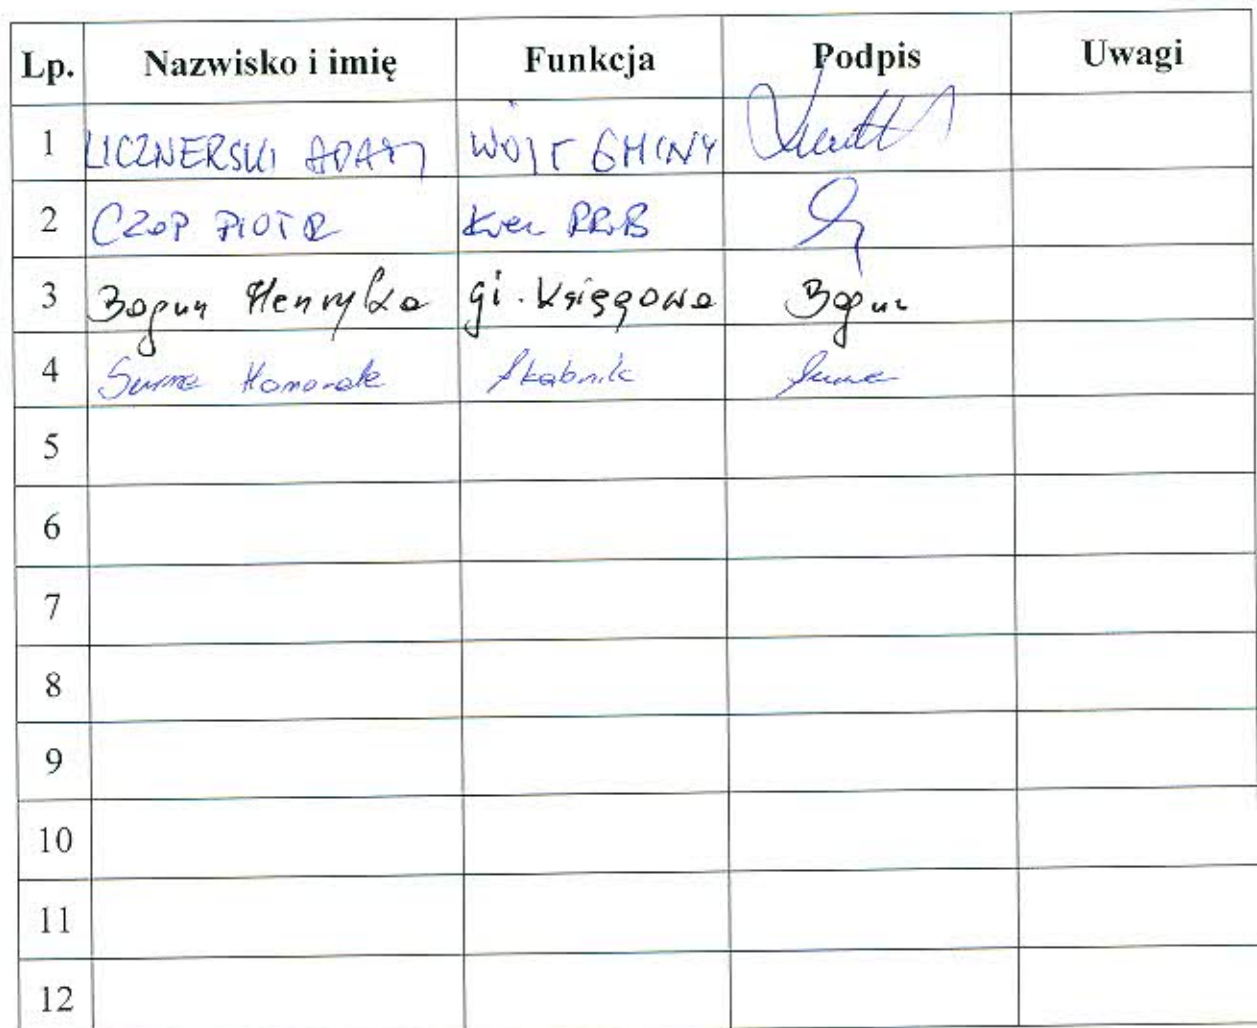 Lp. Nazwisko i imię Funkcja Podpis Uwagi
1 LICZNERSKI ADAM WÓJT GMINY
2 CZOP PIOTR
3 Bogun Henryka gł. Księgowa Bogun
4 Surma Honorata Skarbnik Surma
5
6
7
8
9
10
11
12